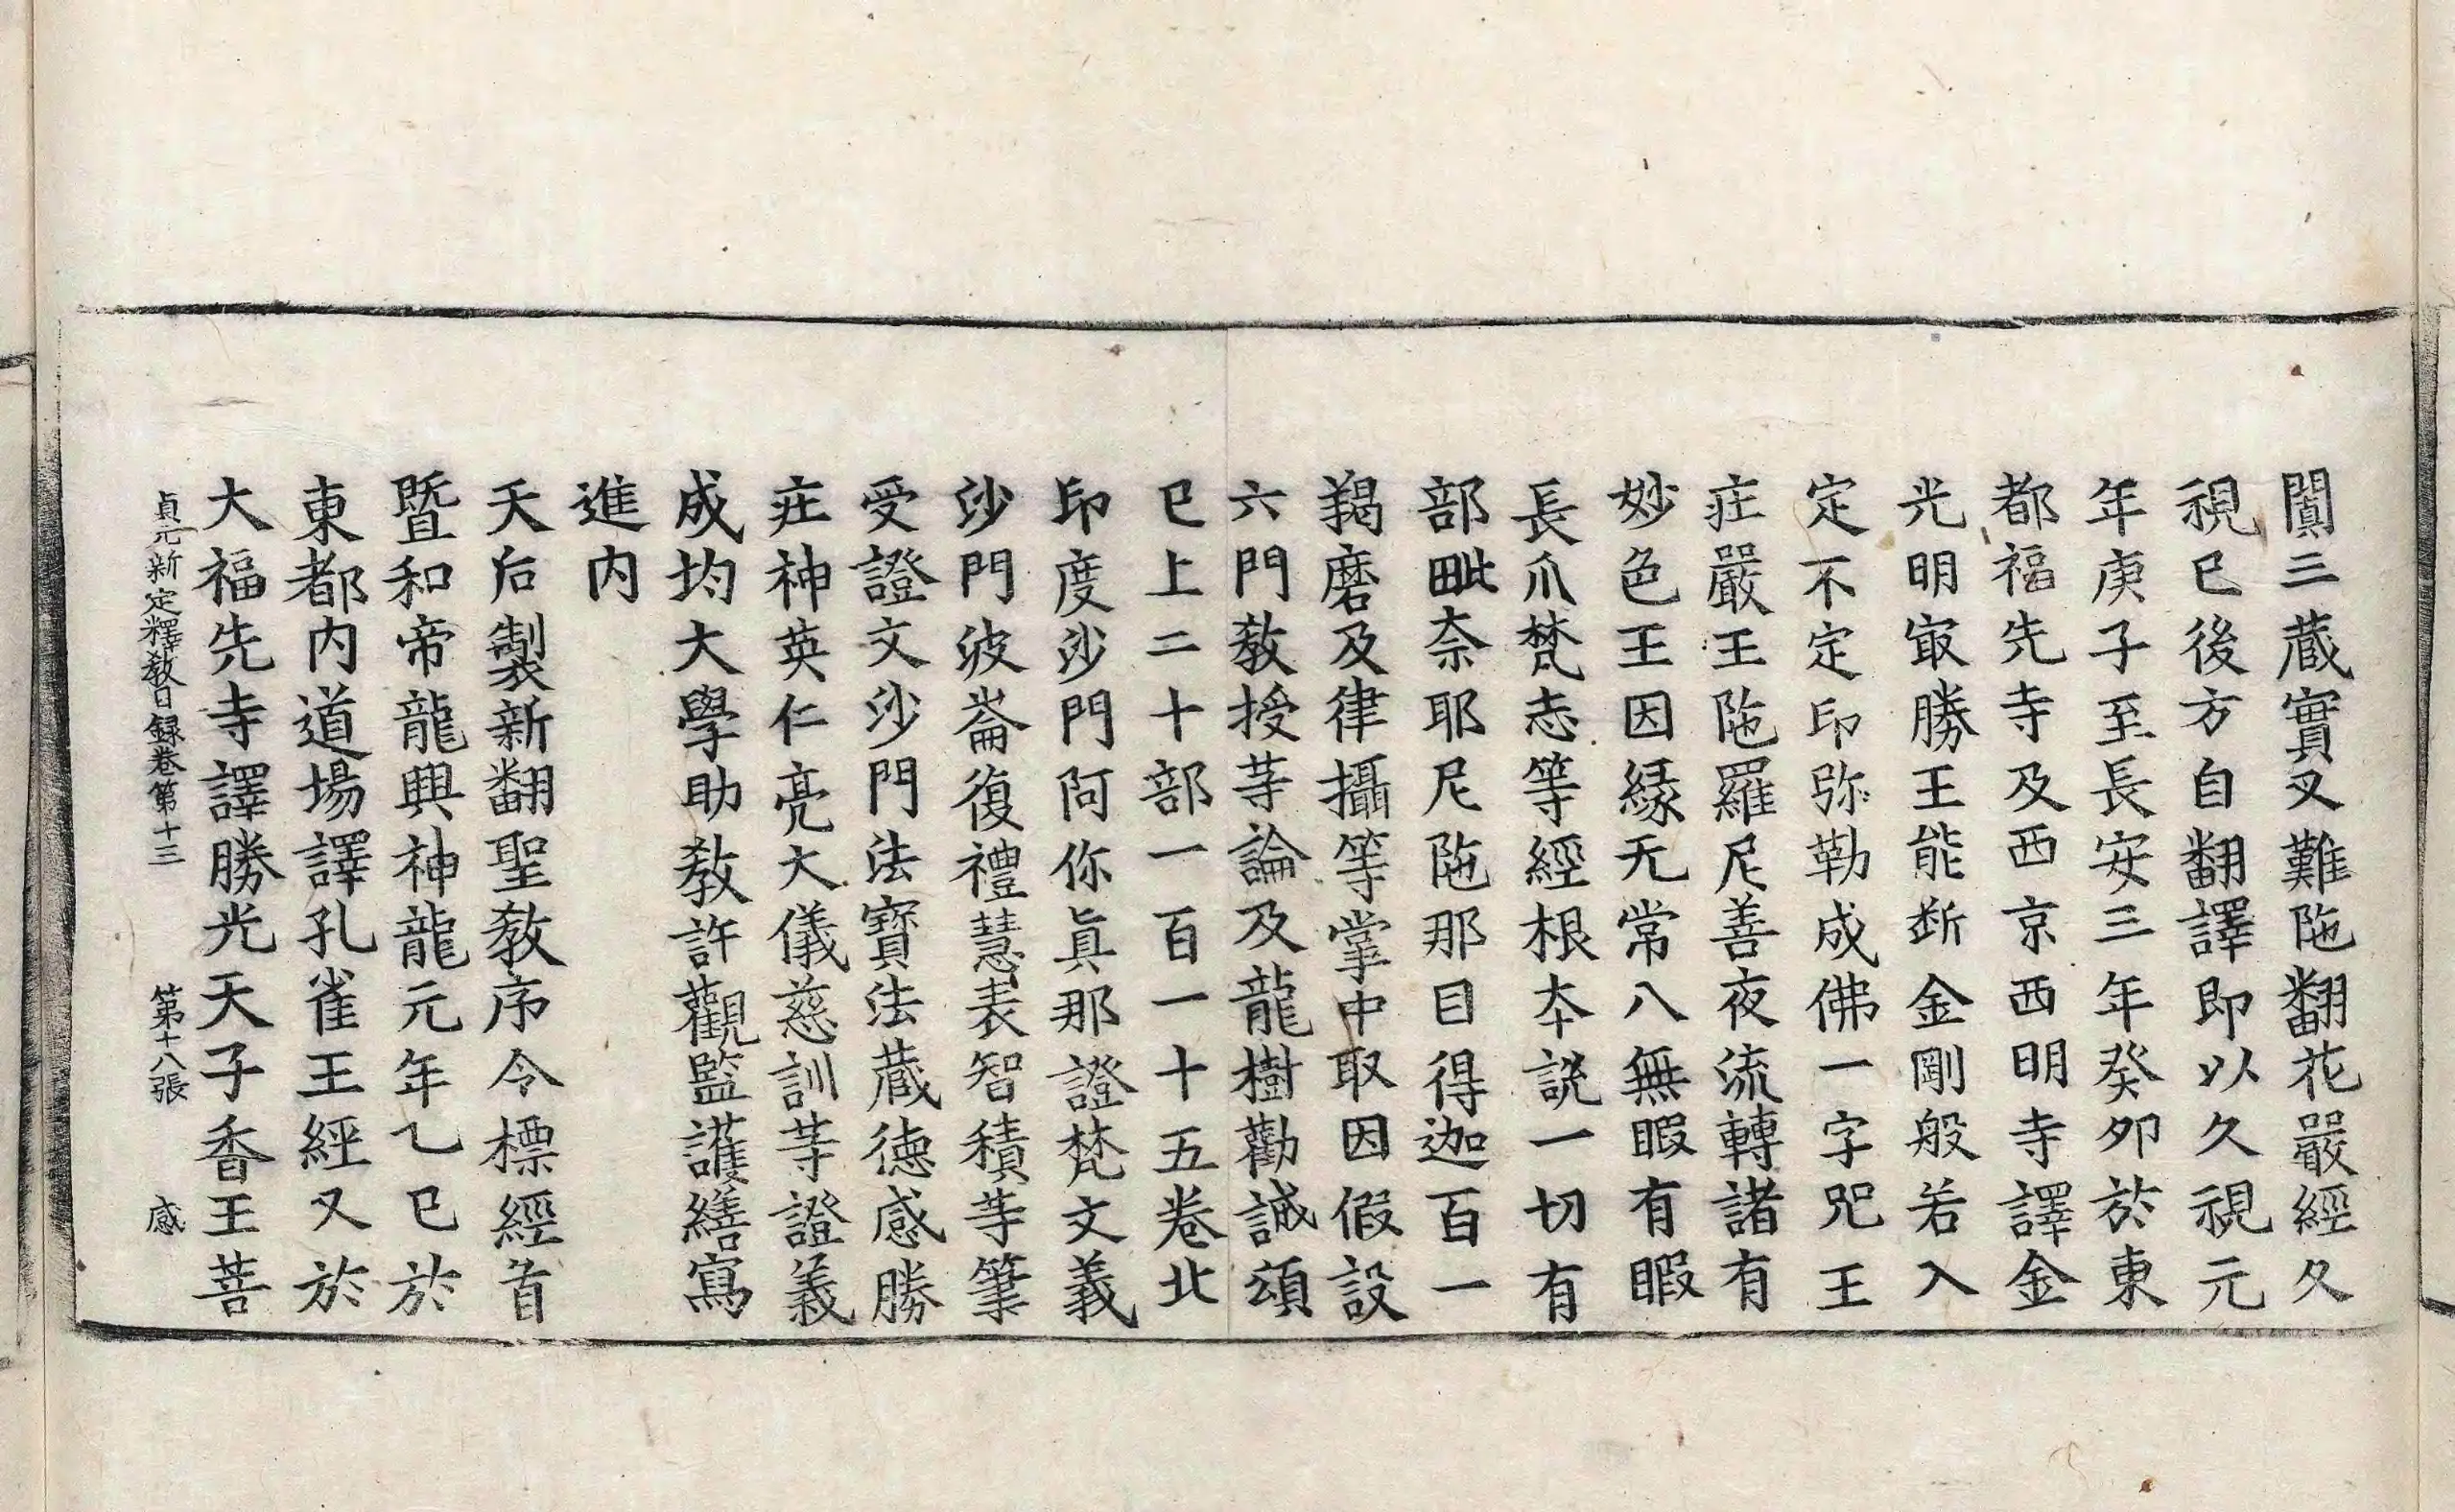 闐三藏實叉難陁翻花嚴經久
視已後方自翻譯即以久視元
年庚子至長安三年癸夘於東
都福先寺及西京西明寺譯金
光明㝡勝王能斷金剛般若入
定不定印弥勒成佛一字咒王
疘嚴王陁羅尼善夜流轉諸有
妙色王因緣无常八無暇有暇
長爪梵志等經根本說一切有
部毗奈耶尼陁那目得迦百一
羯磨及律攝等掌中取因假設
六門教授䓁論及龍樹勸誡頌
已上二十部一百一十五卷北
印度沙門阿你真那證梵文義
沙門波崙復禮慧表智積䓁筆
受證文沙門法寶法藏德感勝
疘神英仁亮大儀慈訓䓁證義
成均大學助教許觀監護繕寫
進內
天后製新翻聖教序令標經首
暨和帝龍興神龍元年乙巳於
東都內道場譯孔雀王經又於
大福先寺譯勝光天子香王菩
貞元新定釋教目録卷第十三 第十八張 感